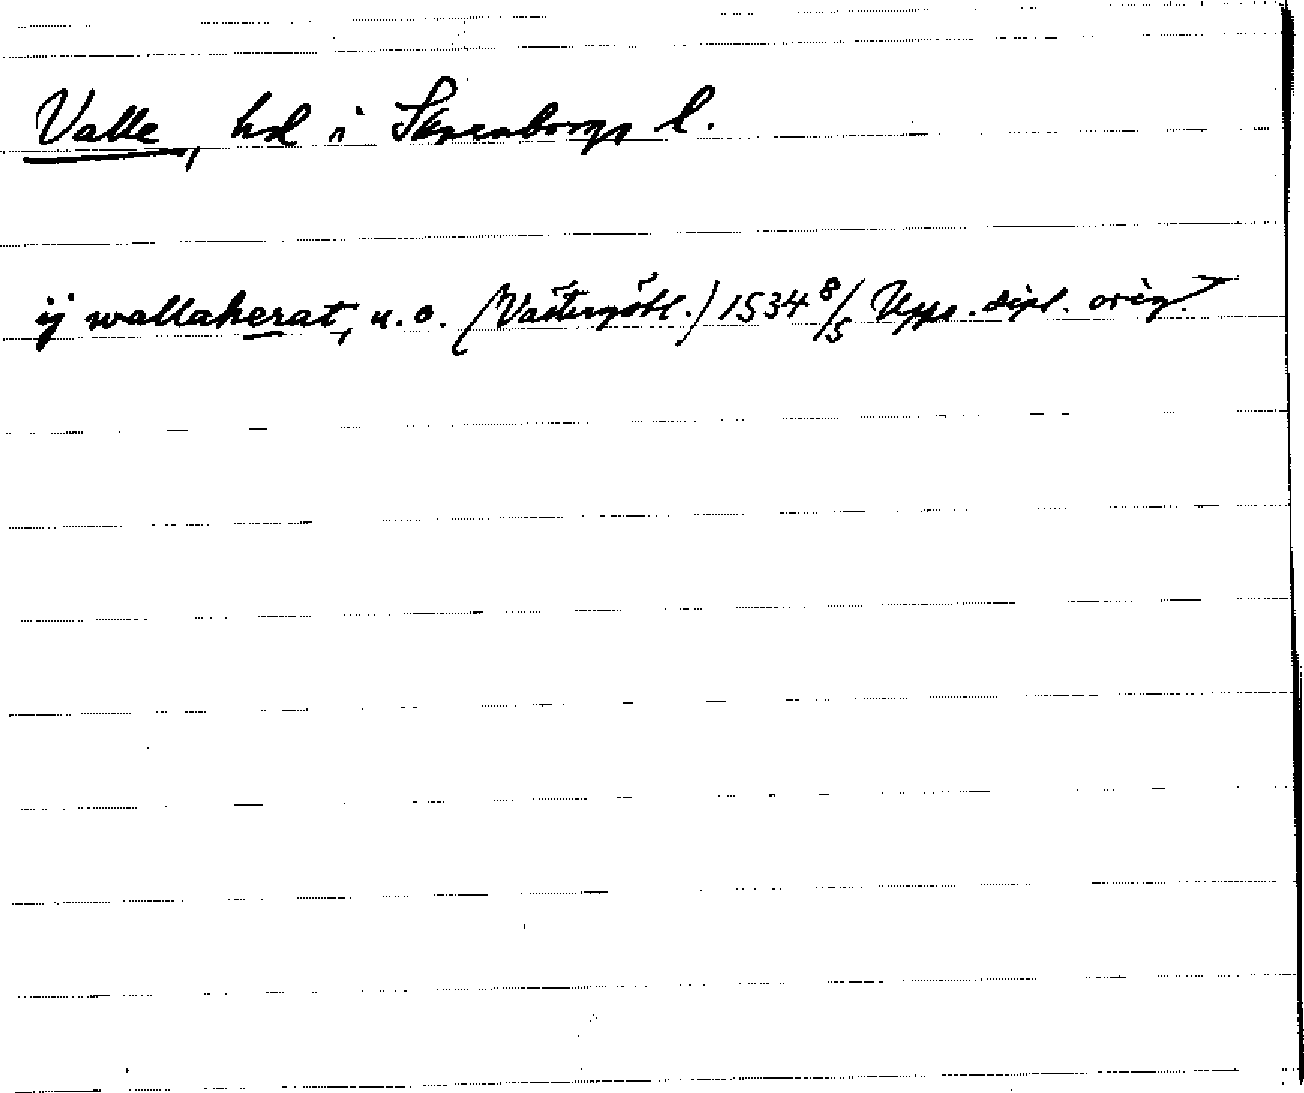 Valle, hd i Skaraborgs l.
ij wallaherat, u. o. (Västergötl.) 1534 8/5 Upps. dipl. orig.